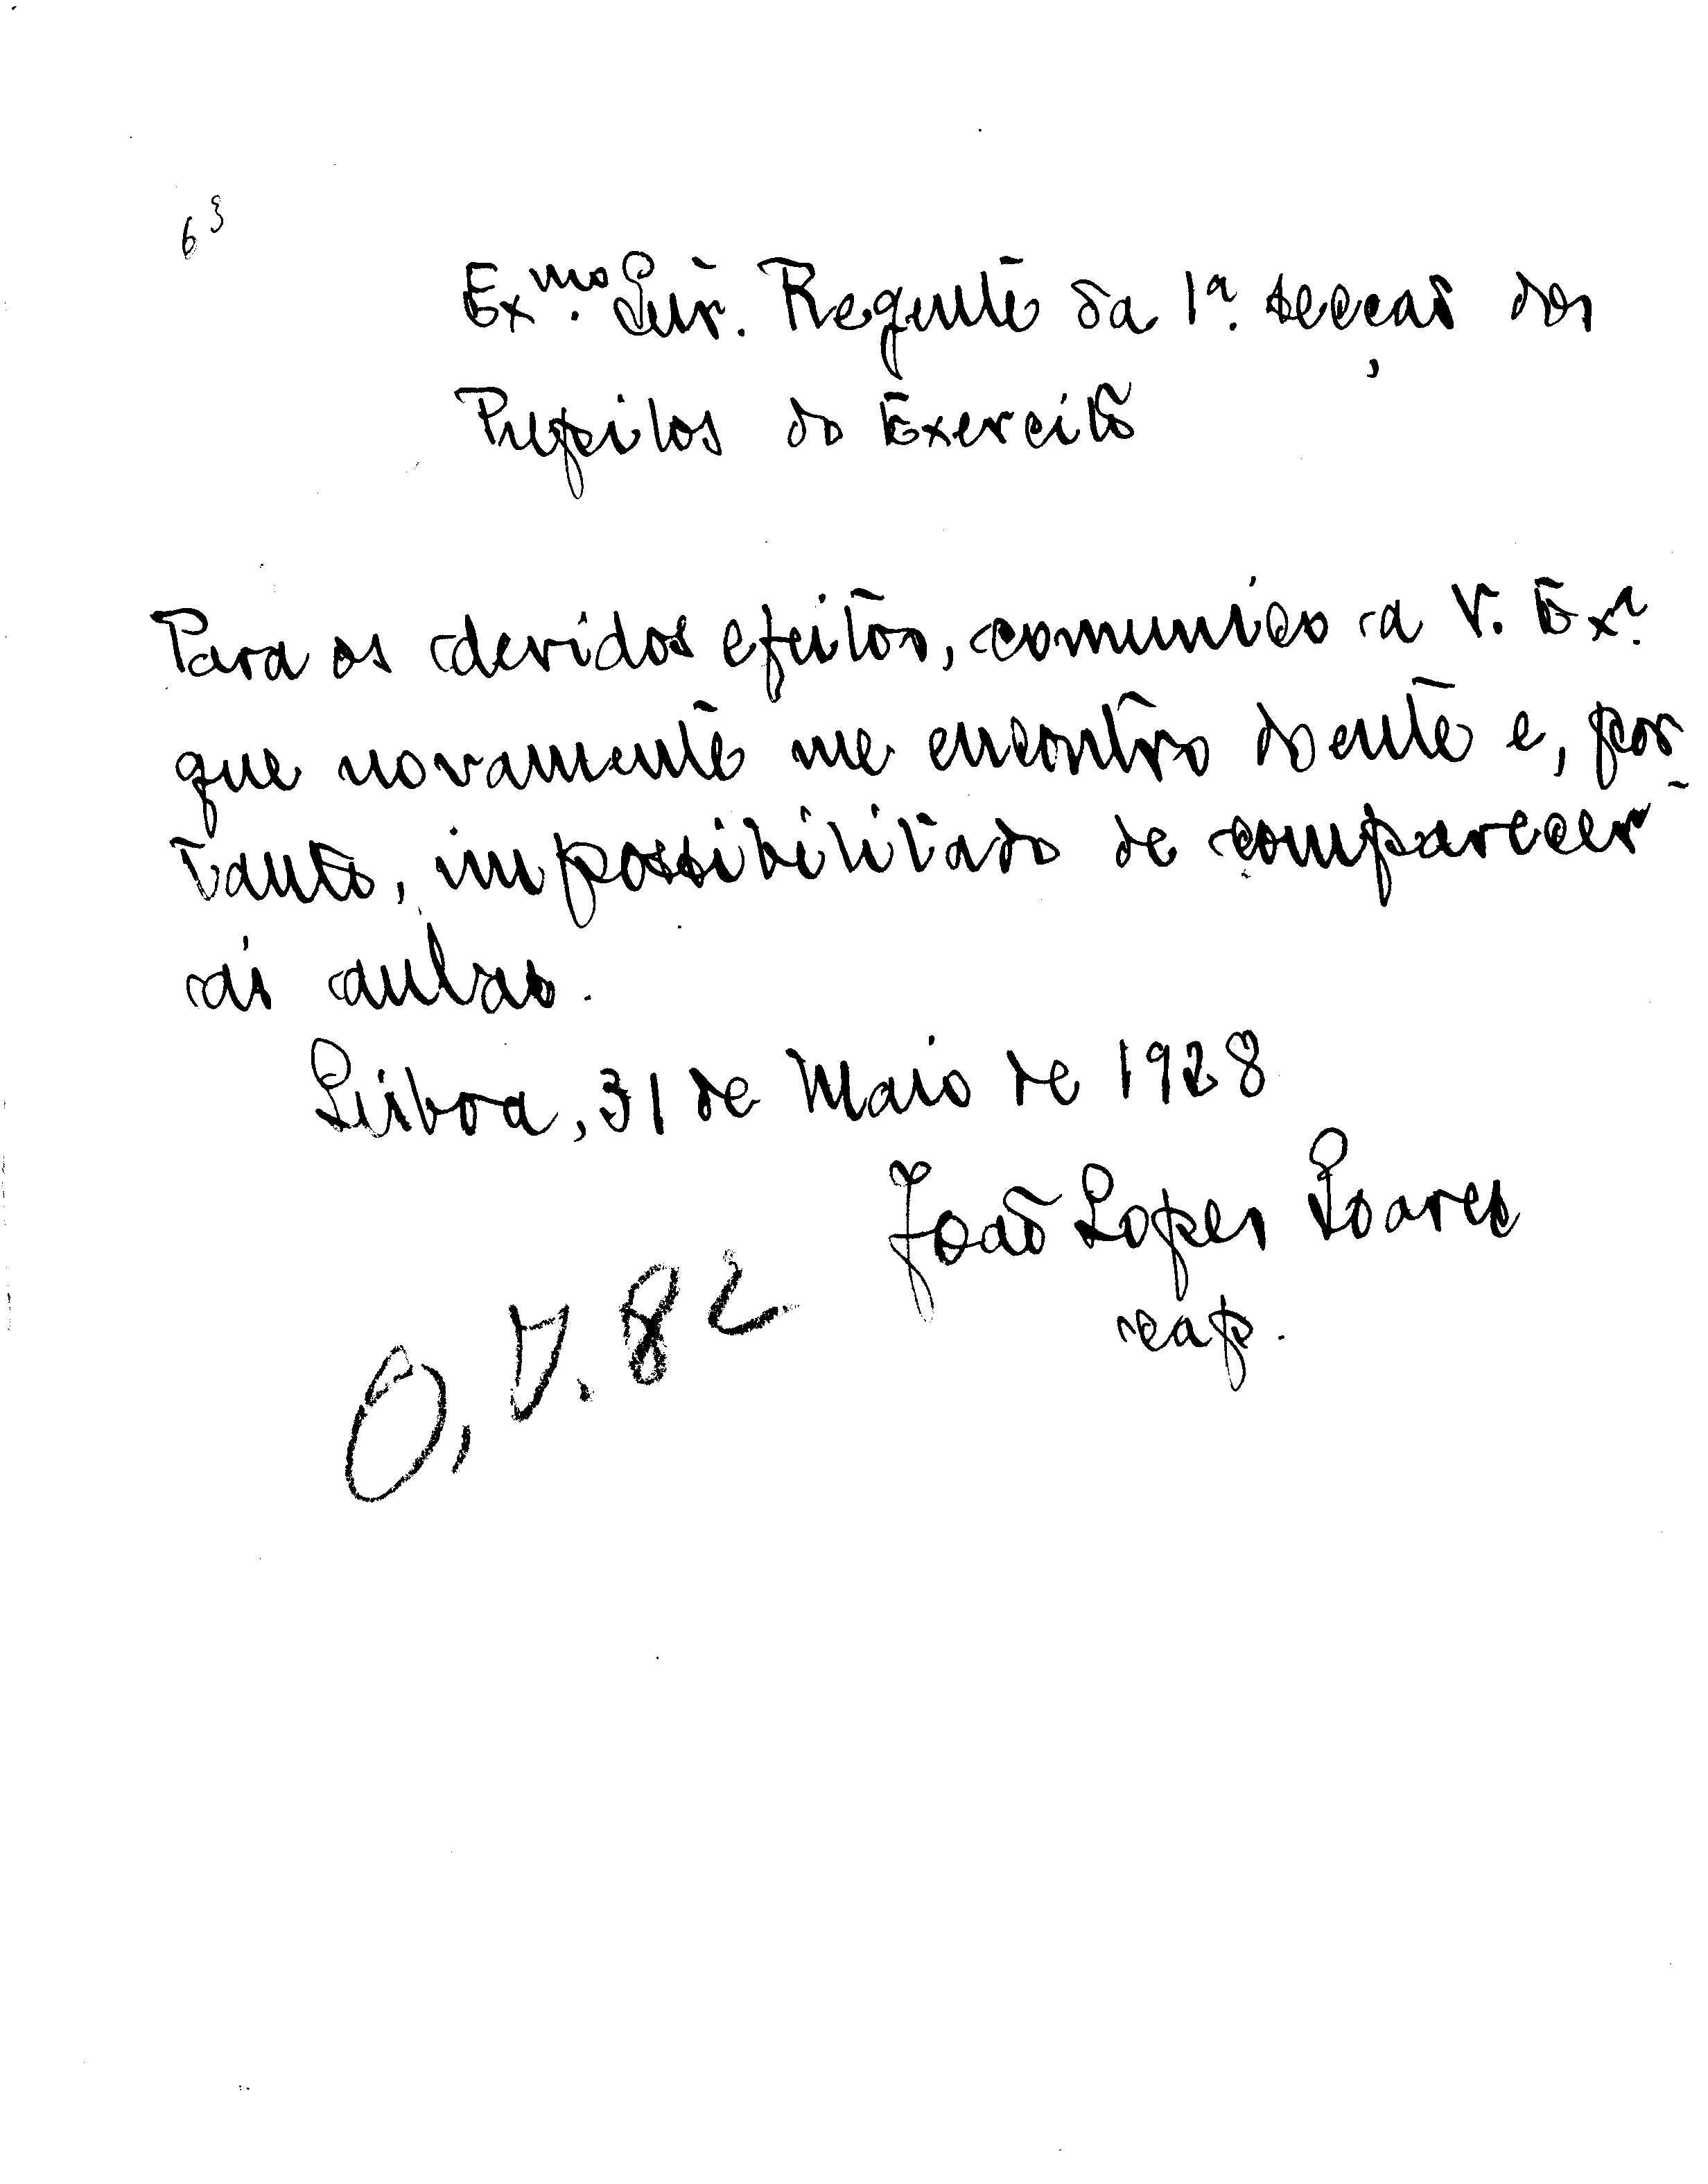 63
Exmo. Snr. Regente da 1ª. secção dos
Pupilos do Exercito
Para os devidos efeitos, comunico a V. Exª.
que novamente me encontro doente e, por-
tanto, impossibilitado de comparecer
ás aulas.
Lisboa, 31 de Maio de 1928
João Lopes Soares
cap.
O, D. 82